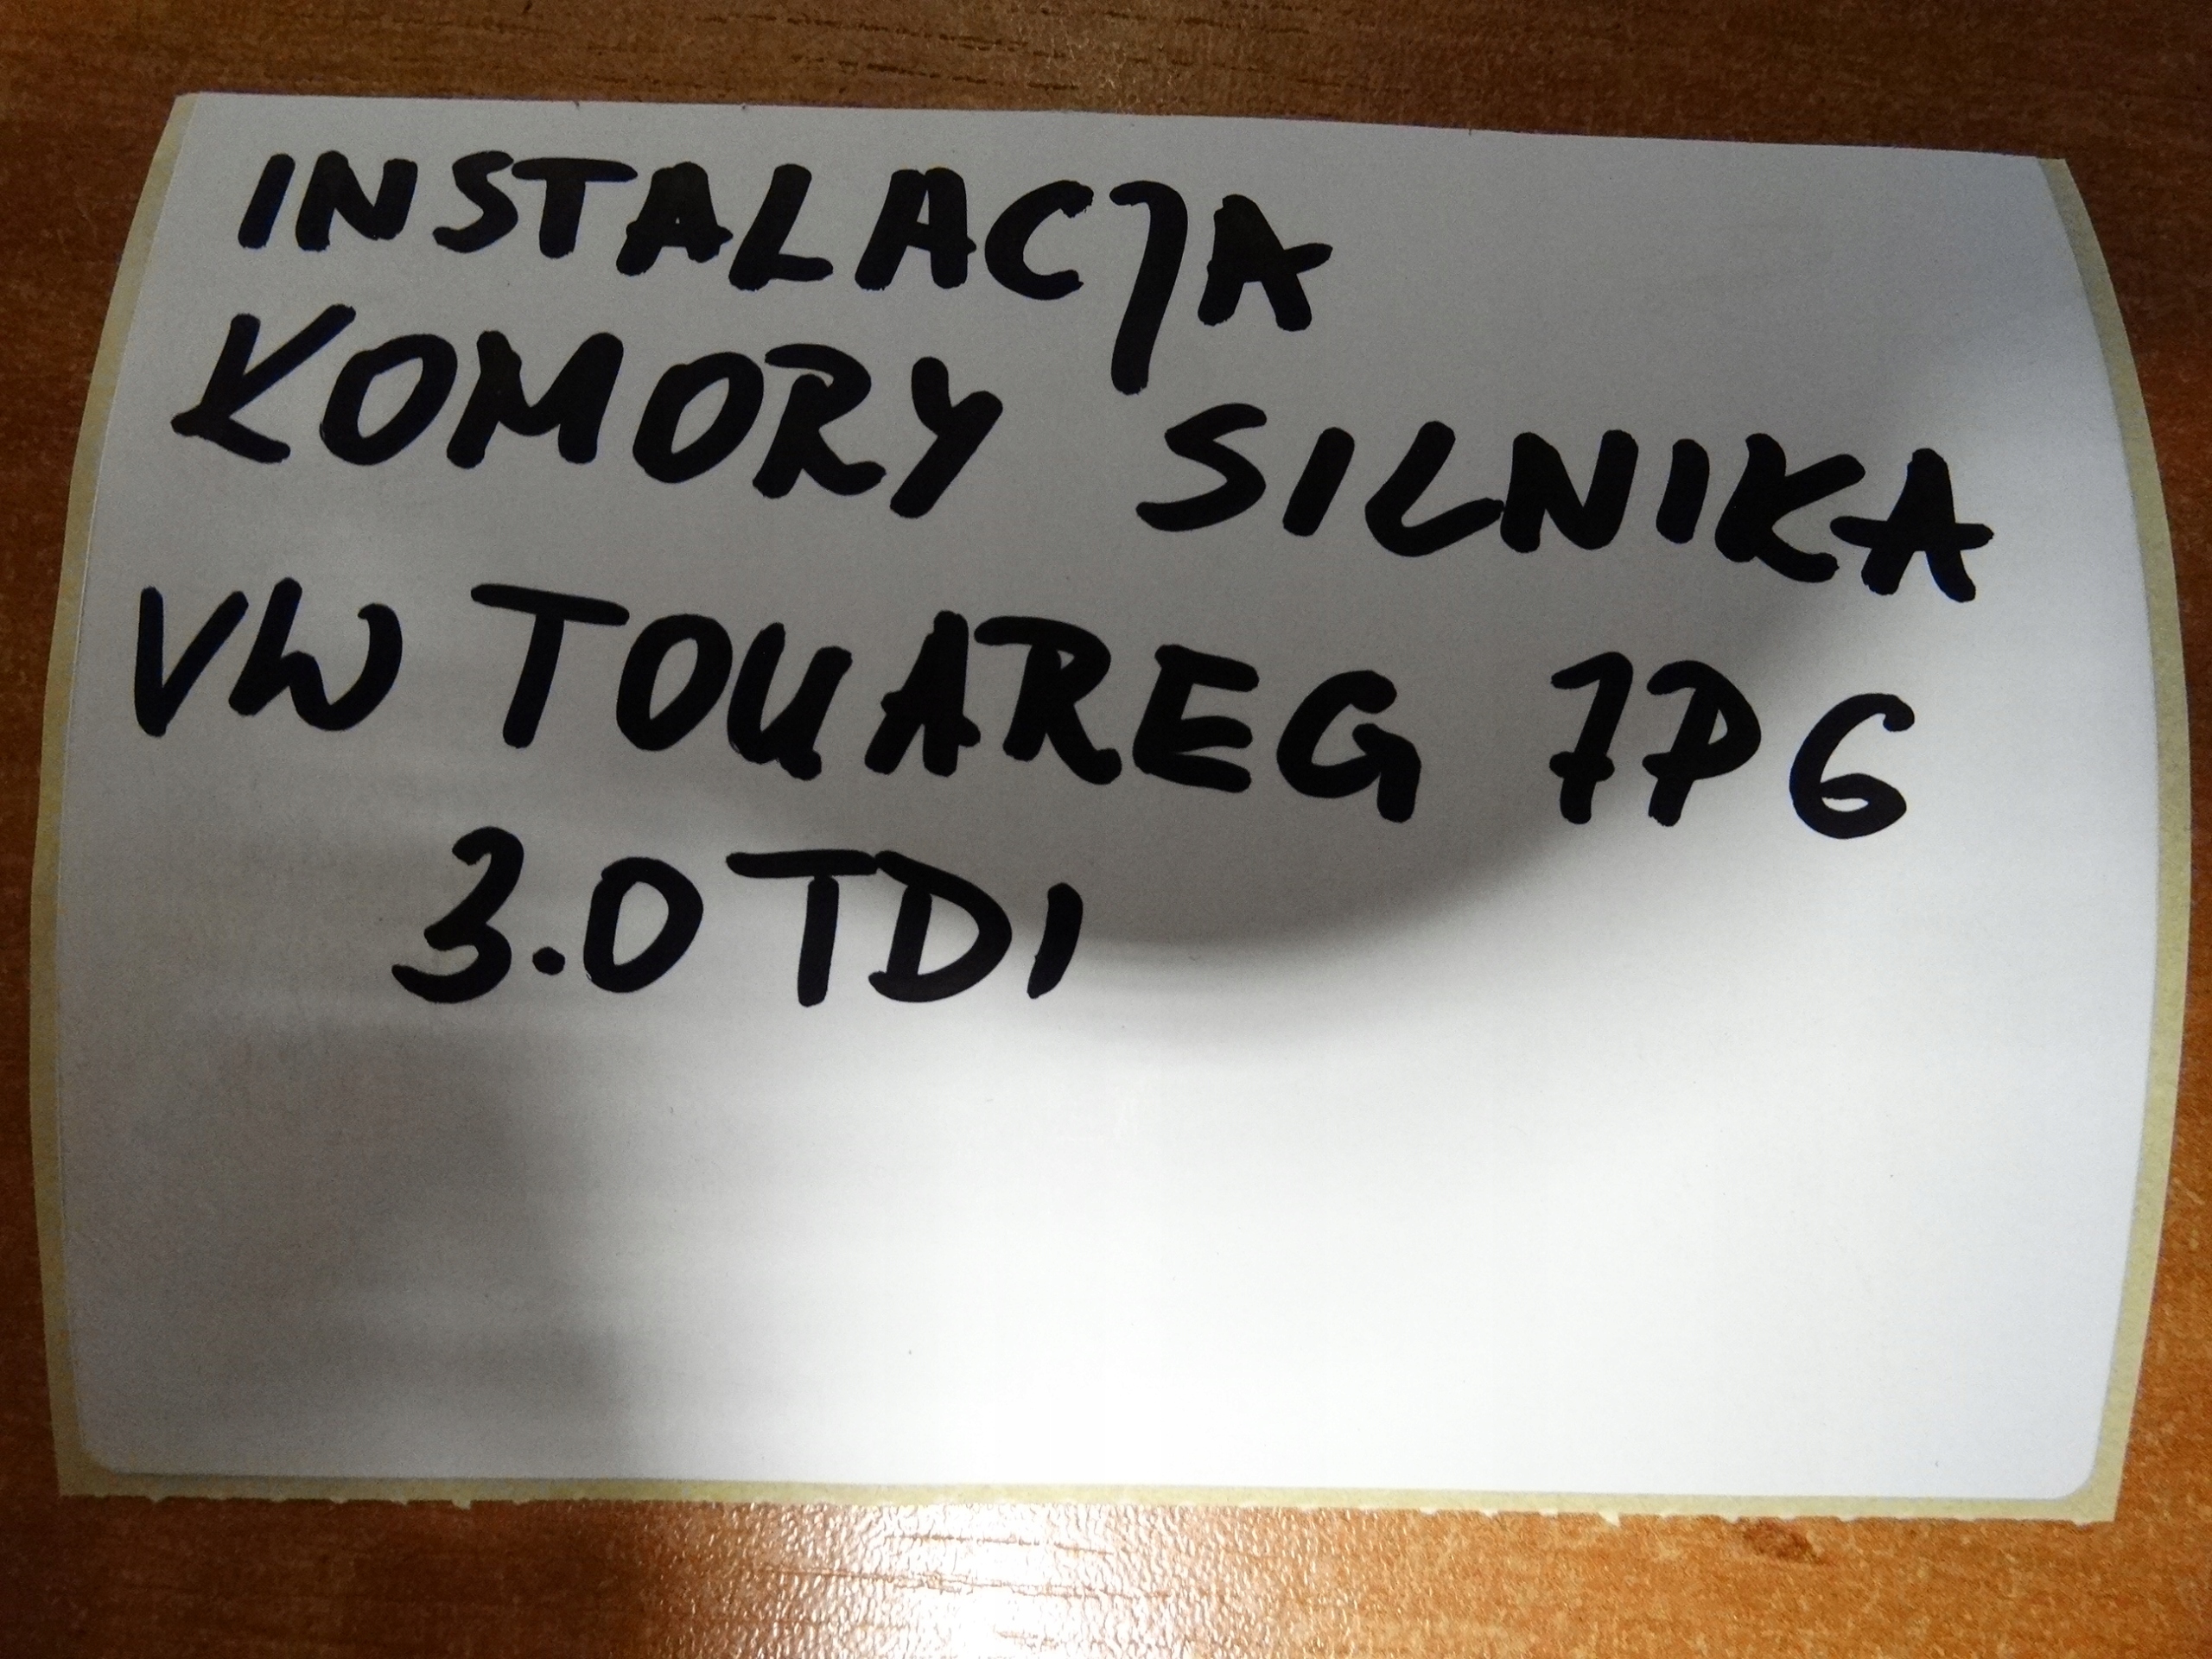 INSTALACJA
KOMORY SILNIKA
VW TOUAREG 7P6
3.0 TDI